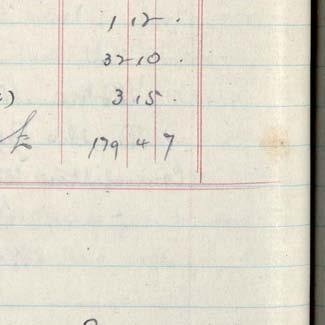 1 12 .
32 10 .
) 3 15 .
179 4 7